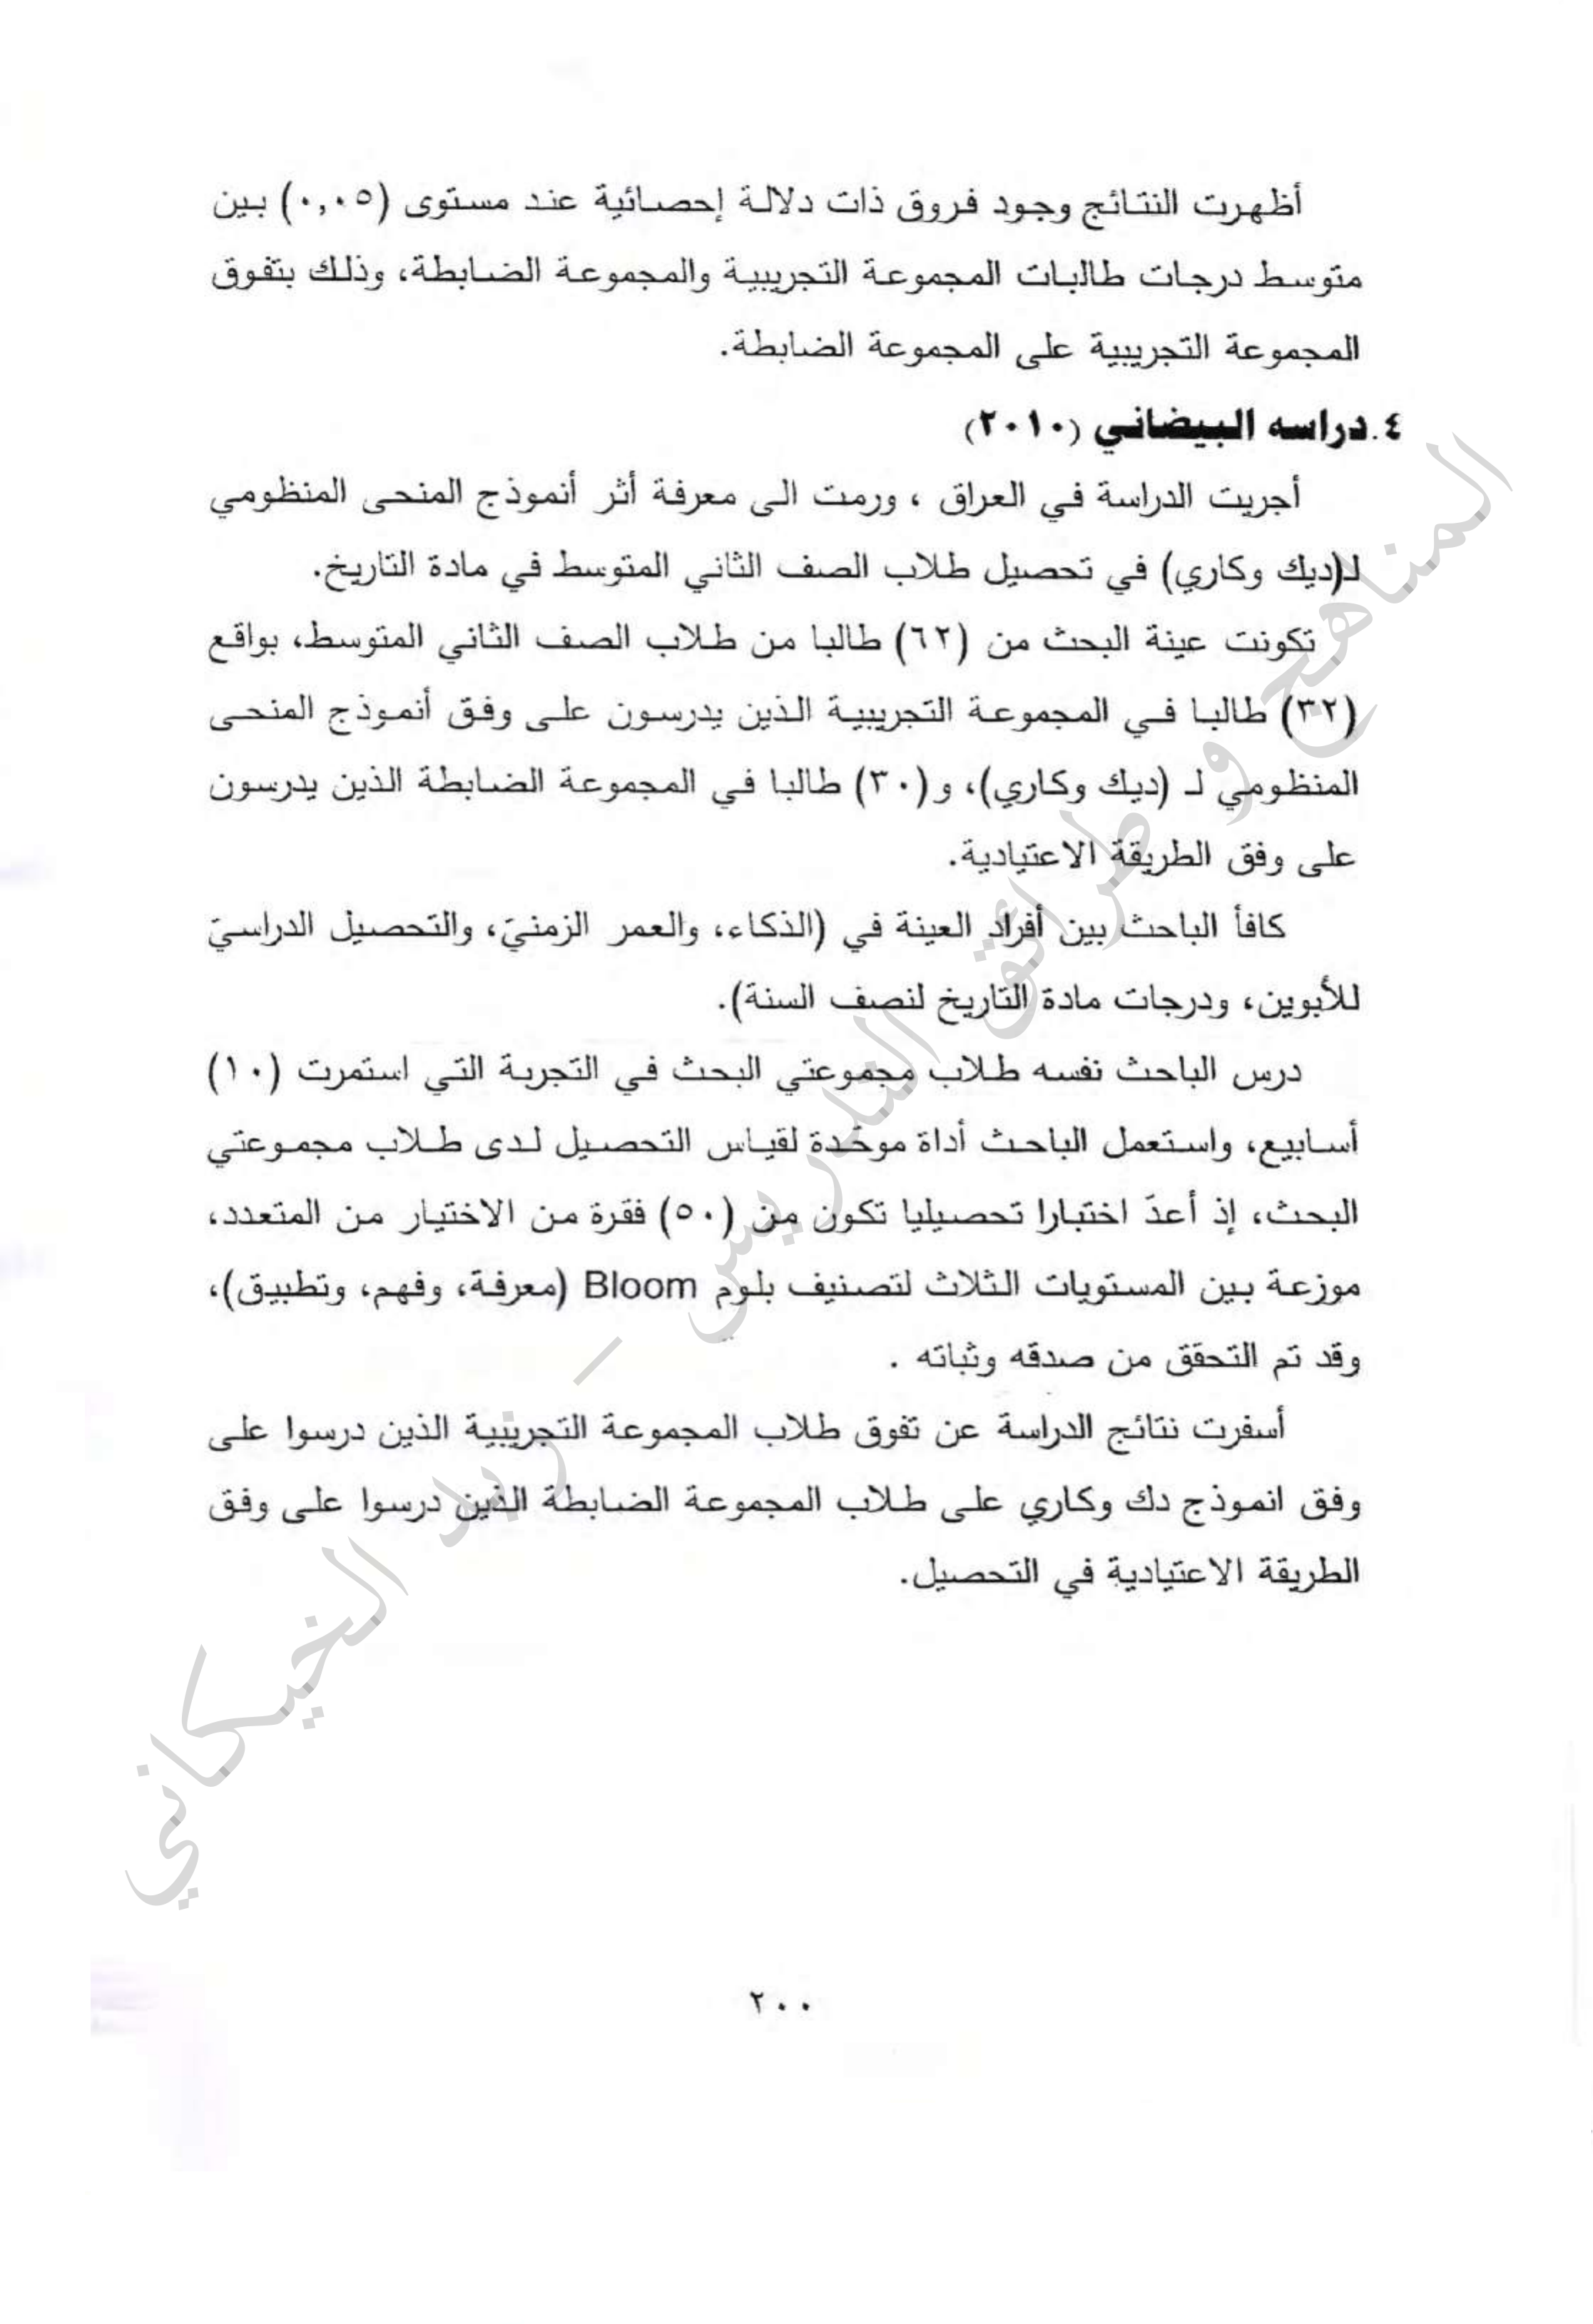 أظهرت النتائج وجود فروق ذات دلالة إحصائية عند مستوى (٠,٠٥) بين
متوسط درجات طالبات المجموعة التجريبية والمجموعة الضابطة، وذلك بتفوق
المجموعة التجريبية على المجموعة الضابطة.
٤.دراسه البيضاني (٢٠١٠)
أجريت الدراسة في العراق ، ورمت الى معرفة أثر أنموذج المنحى المنظومي
لـ(ديك وكاري) في تحصيل طلاب الصف الثاني المتوسط في مادة التاريخ.
تكونت عينة البحث من (٦٢) طالبا من طلاب الصف الثاني المتوسط، بواقع
(٣٢) طالبا في المجموعة التجريبية الذين يدرسون على وفق أنموذج المنحى
المنظومي لـ (ديك وكاري)، و(٣٠) طالبا في المجموعة الضابطة الذين يدرسون
على وفق الطريقة الاعتيادية.
كافأ الباحث بين أفراد العينة في (الذكاء، والعمر الزمنيّ، والتحصيل الدراسيّ
للأبوين، ودرجات مادة التاريخ لنصف السنة).
درس الباحث نفسه طلاب مجموعتي البحث في التجربة التي استمرت (١٠)
أسابيع، واستعمل الباحث أداة موحّدة لقياس التحصيل لدى طلاب مجموعتي
البحث، إذ أعدّ اختبارا تحصيليا تكون من (٥٠) فقرة من الاختيار من المتعدد،
موزعة بين المستويات الثلاث لتصنيف بلوم Bloom (معرفة، وفهم، وتطبيق)،
وقد تم التحقق من صدقه وثباته .
أسفرت نتائج الدراسة عن تفوق طلاب المجموعة التجريبية الذين درسوا على
وفق انموذج دك وكاري على طلاب المجموعة الضابطة الذين درسوا على وفق
الطريقة الاعتيادية في التحصيل.
المناهج و طرائق التدريس – زيد الخيكاني
٢٠٠